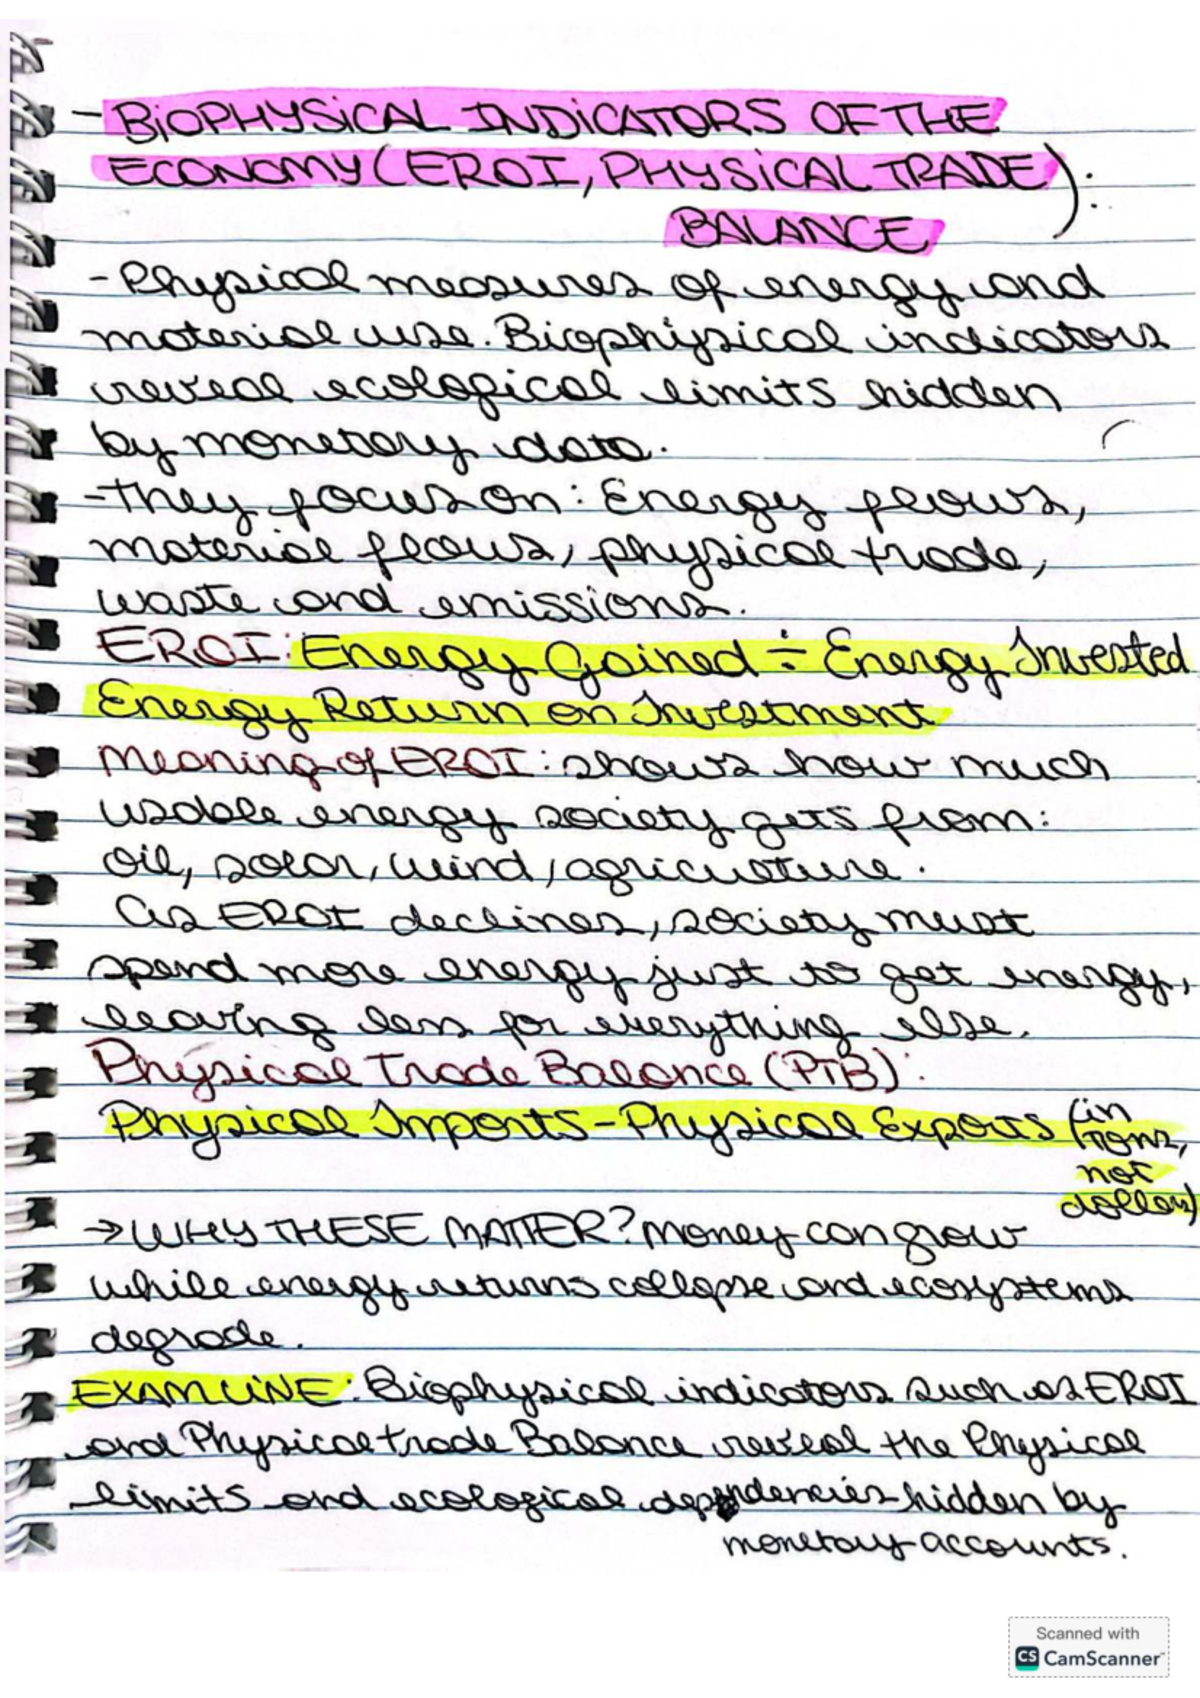 - BIOPHYSICAL INDICATORS OF THE
ECONOMY (EROI, PHYSICAL TRADE
BALANCE):
- Physical measures of energy and
material use. Biophysical indicators
reveal ecological limits hidden
by monetary data.
- They focus on: Energy flows,
material flows, physical trade,
waste and emissions.
EROI: Energy Gained ÷ Energy Invested
Energy Return on Investment
Meaning of EROI: shows how much
usable energy society gets from:
oil, solar, wind, agriculture.
As EROI declines, society must
spend more energy just to get energy,
leaving less for everything else.
Physical Trade Balance (PTB):
Physical Imports - Physical Exports (in
tons,
not
dollars)
→ WHY THESE MATTER? Money can grow
while energy returns collapse and ecosystems
degrade.
EXAM LINE: Biophysical indicators such as EROI
and Physical trade Balance reveal the Physical
limits and ecological dependencies hidden by
monetary accounts.
Scanned with
CS CamScanner